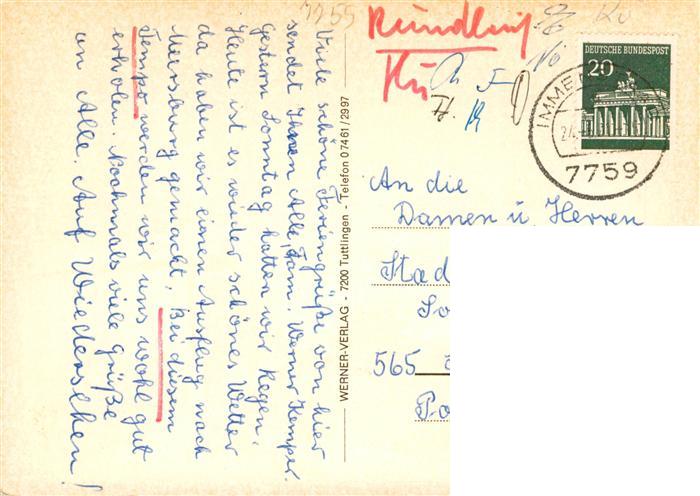 7755
Viele schöne Feriengrüße von hier
sendet Ihnen Alle, Fam. Werner Kemper.
Gestern Sonntag hatten wir Regen,
Heute ist es wieder schönes Wetter
da haben wir einen Ausflug nach
Meersburg gemacht. Bei diesem
Tempo werden wir uns wohl gut
erholen. Nochmals viele Grüße
an Alle. Auf Wiedersehen!
WERNER-VERLAG - 7200 Tuttlingen - Telefon 07461/2997
Rundling
Ku
DEUTSCHE BUNDESPOST
20
IMME
7759
An die
Damen u. Herren
Stad
So
565
Po